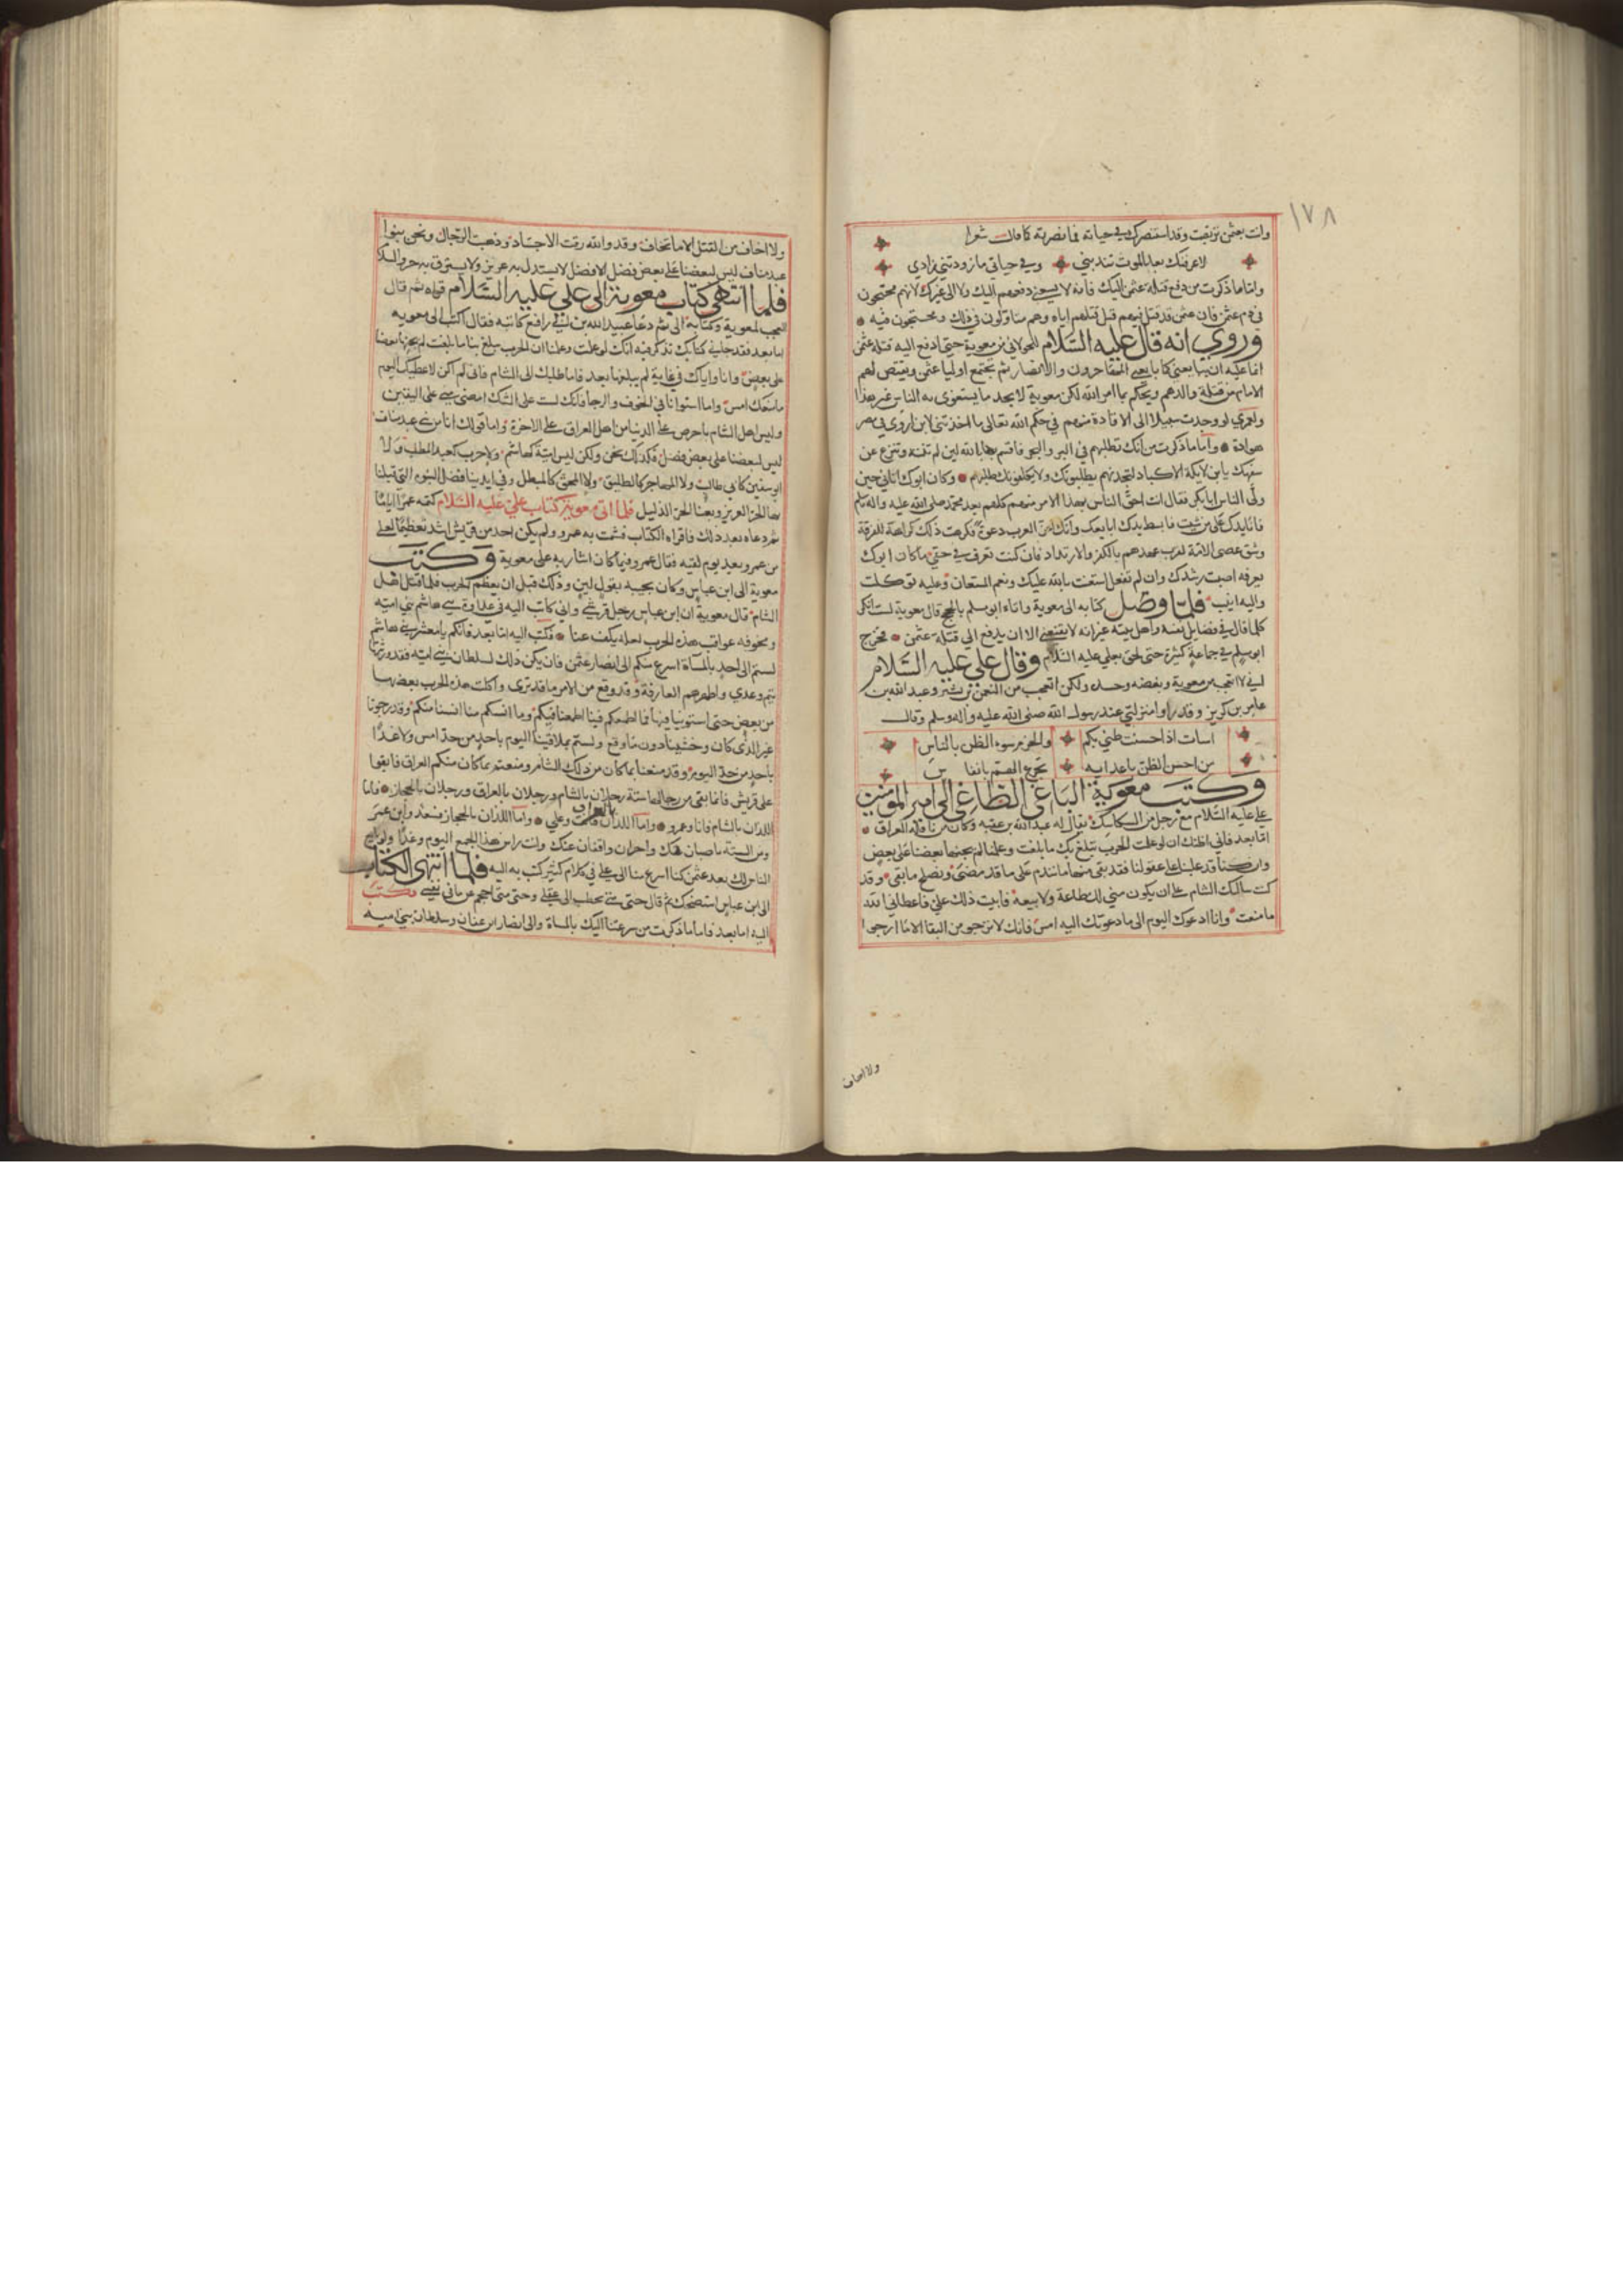 ١٧٨
وانت بعثمن تربصت وقد استنصرك في حياته فما نصرته كما قالت شعرا
لا عرفنك بعد الموت تندبني وفي حياتي ما زودتني زادي
واما ما ذكرت من دفع قتلة عثمن اليك فانه لا يسعني دفعهم اليك ولا الى غيرك لانهم محتجون
في دم عثمن فان عثمن قد قتل قبل قتلهم اياه وهم متاولون في ذلك ومحتجون فيه
وروي انه قال عليه السلام للخولاني من معوية حتى ادفع اليه قتلة عثمن
انما عليه ان يبايعني كما بايعني المهاجرون والانصار ثم يجتمع اوليا عثمن ويقتص لهم
الامام من قتلة والدهم ويحكم بما امر الله لكن معوية لا يجد ما يستغوي به الناس غير هذا
ولعمري لو وجدت سبيلا الى الاقادة منهم في حكم الله تعالى ما اخذتني لابن اروى في مصر
هوادة واما ما ذكرت من انك تطلبهم في البر والبحر فاقسم بالله لين لم تنته وتنزع عن
سفهك يا بن اكلة الاكباد لتجدنهم يطلبونك ولا يكلفونك طلبهم وكان ابوك اتاني حين
ولى الناس ابا بكر فقال انت احق الناس بهذا الامر منهم كلهم بعد محمد صلى الله عليه واله وسلم
فانا يدك على من شيت فابسط يدك ابايعك وانك اعز العرب دعوة فكرهت ذلك كراهة للفرقة
وشق عصى الامة لقرب عهدهم بالكفر والارتداد فان كنت تعرف في حقي ما كان ابوك
يعرفه اصبت رشدك وان لم تفعل استعنت بالله عليك ونعم المستعان وعليه توكلت
واليه انيب فلما وصل كتابه الى معوية واتاه ابو مسلم بالحج قال معوية لست انكر
كلما قال في فضايل نفسه واهل بيته غير انه لا يقنعني الا ان يدفع الي قتلة عثمن فخرج
ابو مسلم في جماعة كثيرة حتى لحق بعلي عليه السلام وقال علي عليه السلام
لا اتعجب من معوية وبغضه وحده ولكن اتعجب من النعمن بن بشير وعبد الله بن
عامر بن كريز وقد راوا منزلتي عند رسول الله صلى الله عليه واله وسلم وقال
اسات اذ احسنت ظني بكم والحزم سوء الظن بالناس
من احسن الظن باعدايه تجرع الهم بانفاس
وكتب معوية الباغي الطاغي الى امير المومنين
علي عليه السلام مع رجل من السكاسك يقال له عبد الله بن عقبه وكان من ناقلة العراق
اما بعد فاني اظنك ان لو علمت الحرب تبلغ بك ما بلغت وعلمنا لم يجنها بعضنا على بعض
وان كنا قد غلبنا على عقولنا فقد بقي منها ما نندم على ما قد مضى ونصلح ما بقي وقد
كنت سالتك الشام على ان يكون مني لك طاعة ولا بيعه فابيت ذلك علي فاعطاني الله
ما منعت وانا ادعوك اليوم الى ما دعوتك اليه امس فانك لا ترجو من البقا الا ما ارجوا
ولا اخاف
ولا اخاف من القتل الا ما تخاف وقد والله رقت الاجساد وذهبت الرجال ونحن بنوا
عبد مناف ليس لبعضنا على بعض فضل الا فضل لا يستدل به عزيز ولا يسترق به حر والسلام
فلما انتهى كتاب معوية الى علي عليه السلام قراه ثم قال
العجب لمعوية وكتابه الي ثم دعا عبيد الله بن ابي رافع كاتبه فقال اكتب الى معويه
اما بعد فقد جاني كتابك تذكر فيه انك لو علمت وعلمنا ان الحرب تبلغ بنا ما بلغت لم يجنها بعضنا
على بعض وانا واياك في غاية لم يبلغها بعد فاما طلبك الى الشام فاني لم اكن لاعطيك اليوم
ما منعتك امس واما استوانا في الخوف والرجا فلك لست على الشك امضى مني على اليقين
وليس اهل الشام باحرص على الدنيا من اهل العراق على الاخرة واما قولك انا من بني عبد مناف
ليس لبعضنا على بعض فضل فكذلك نحن ولكن ليس امية كهاشم ولا حرب كعبد المطلب ولا
ابو سفين كابي طالب ولا المهاجر كالطليق ولا المحق كالمبطل وفي ايدينا فضل النبوه التي قتلنا
بها الحر العزيز وبعنا الحر الذليل فلما اتى معوية كتاب علي عليه السلام كتمه عمرا اياما
ثم دعاه بعد ذلك فاقراه الكتاب فشمت به عمرو ولم يكن احد من قريش اشد تعظيما لعلي
من عمرو بعد يوم لقيه فقال عمرو فيما كان اشار به على معوية وكتب
معوية الى ابن عباس وكان يجيبه بقول لين وذلك قبل ان يعظم الحرب فلما قتل اهل
الشام قال معوية ان ابن عباس رجل قرشي واني كاتب اليه في عداوة بني هاشم بني اميه
ومخوفه عواقب هذه الحرب لعله يكف عنا فكتب اليه اما بعد فانكم يا معشر بني هاشم
لستم الى احد بالمساة اسرع منكم الى انصار عثمن فان يكن ذلك لسلطان بني اميه فقد ورثها
تيم وعدي واظهرهم العارفة وقد وقع من الامر ما قد ترى واكلت هذه الحرب بعضها
من بعض حتى استوينا فيها فما اطمعكم فينا اطمعنا فيكم وما انسكم منا انسنا منكم وقد رجونا
غير الذي كان وخشينا دون ما وقع ولستم بملاقينا اليوم باحد من حد امس ولا غدا
باحد من حد اليوم وقد منعنا بما كان من ذلك الشام ومنعتم بما كان منكم العراق فابقوا
على قريش فانما بقي من رجالها ستة رجلان بالشام ورجلان بالعراق ورجلان بالحجاز فاما
اللذان بالشام فانا وعمرو واما اللذان بالعراق فانت وعلي واما اللذان بالحجاز فسعد وابن عمر
ومن الستة ناصبان لك واخران واقفان عنك وانت راس هذا الجمع اليوم وغدا ولو بايع
الناس لك بعد عثمن كنا اسرع منا الى علي في كلام كثير كتب به اليه فلما انتهى الكتاب
الى ابن عباس استضحك ثم قال حتى متى يخطب الى عقلي وحتى متى احجم عن ما في نفسي فكتب
اليه اما بعد فاما ما ذكرت من سرعتنا اليك بالمساة والى انصار ابن عفان وسلطان بني اميه